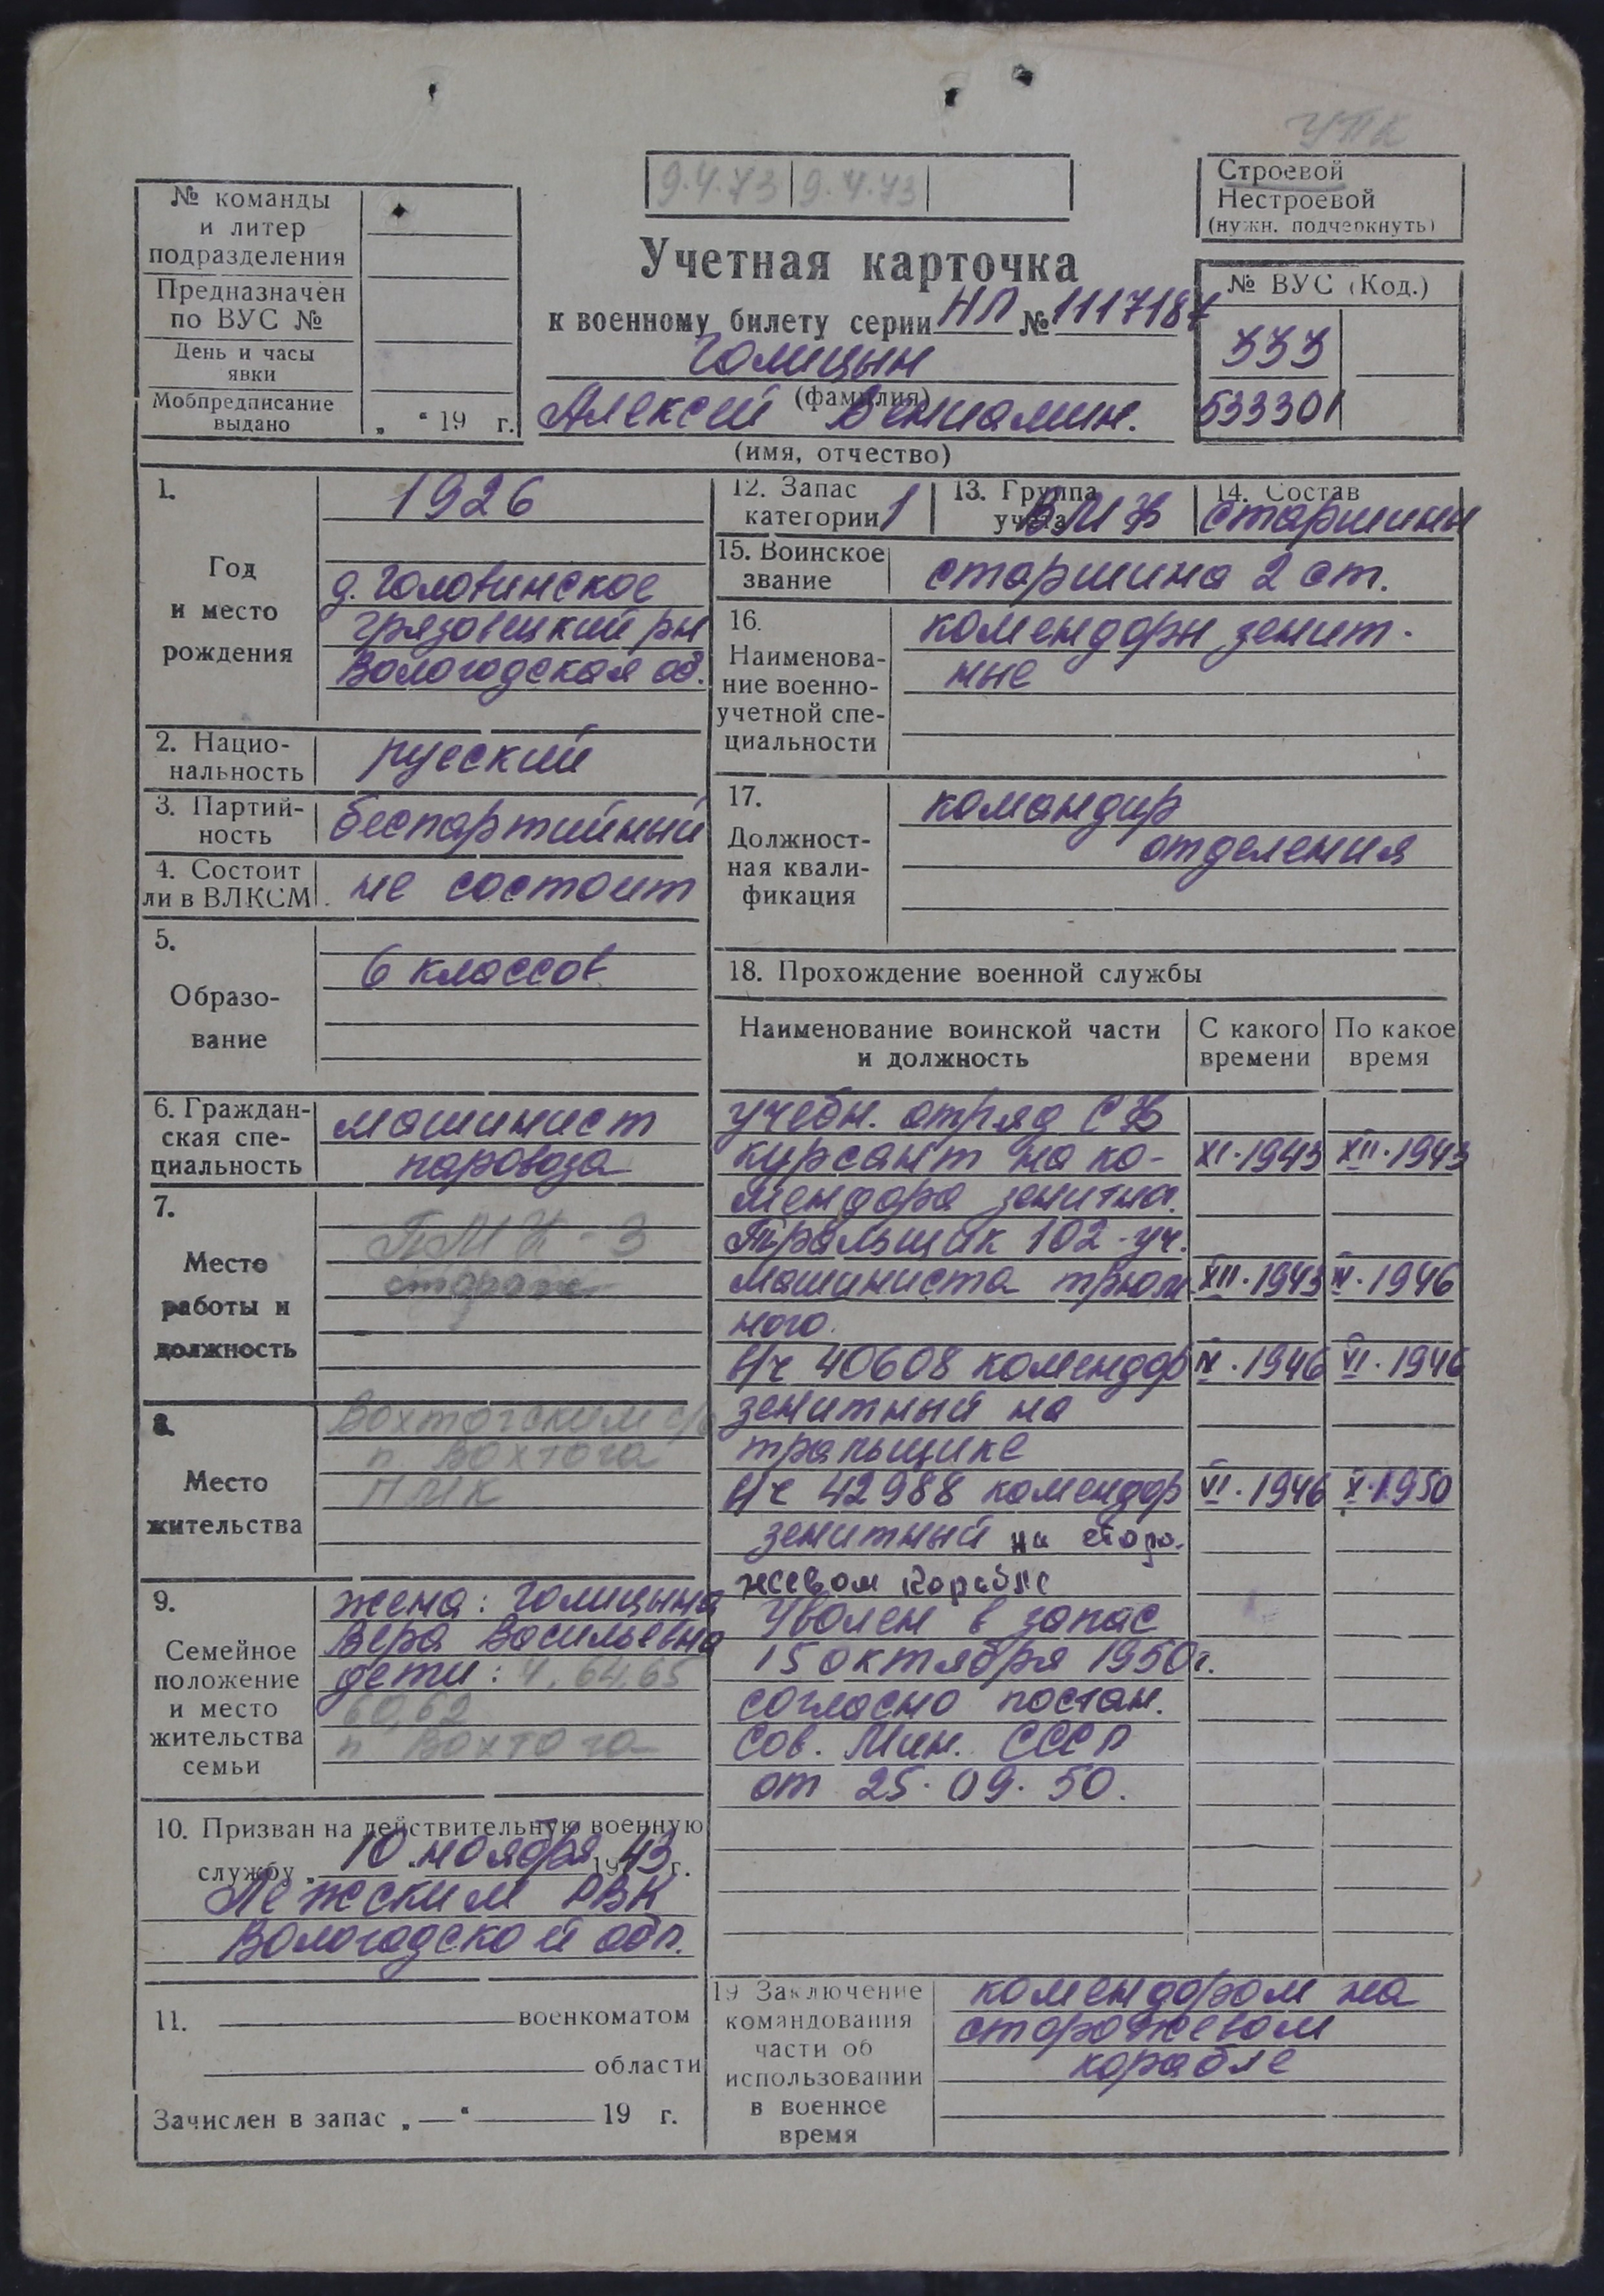 УПК
9.4.73 9.4.73
Строевой
Нестроевой
(нужн. подчеркнуть)
№ команды
и литер
подразделения
Предназначен
по ВУС №
День и часы
явки
Мобпредписание
выдано
„ “ 19 г.
Учетная карточка
к военному билету серии НЛ № 1117187
Голицын
(фамилия)
Алексей Вениамин.
(имя, отчество)
№ ВУС (Код.)
333
533301
1.
Год
и место
рождения
1926
д. Головинское
Грязовецкий рн
Вологодская об.
2. Нацио-
нальность
русский
3. Партий-
ность
беспартийный
4. Состоит
ли в ВЛКСМ
не состоит
5.
Образо-
вание
6 классов
6. Граждан-
ская спе-
циальность
машинист
паровоза
7.
Место
работы и
должность
ПМК-3
сторож
8.
Место
жительства
Вохтогским с/с
п. Вохтога
ПМК
9.
Семейное
положение
и место
жительства
семьи
жена: Голицына
Вера Васильевна
дети: 4, 64, 65
60, 62
п Вохтога
10. Призван на действительную военную
службу „ 10 “ ноября 19 43 г.
Лежским РВК
Вологодской обл.
11. военкоматом
области
Зачислен в запас „ — “ 19 г.
12. Запас
категории 1
13. Группа
учета ВМФ
14. Состав
старшины
15. Воинское
звание
старшина 2 ст.
16.
Наименова-
ние военно-
учетной спе-
циальности
комендоры зенит-
ные
17.
Должност-
ная квали-
фикация
командир
отделения
18. Прохождение военной службы
Наименование воинской части
и должность
С какого
времени
По какое
время
учебн. отряд СФ
курсант на ко- XI.1943 XII.1943
мендора зенитн.
Тральщик 102-уч.
машиниста трюм XII.1943 IV.1946
ного.
В/ч 40608 комендор IV.1946 VI.1946
зенитный на
тральщике
В/ч 42988 комендор VI.1946 X.1950
зенитный на сторо-
жевом корабле
Уволен в запас
15 октября 1950г.
согласно постан.
Сов. Мин. СССР
от 25.09.50.
19 Заключение
командования
части об
использовании
в военное
время
комендором на
сторожевом
корабле